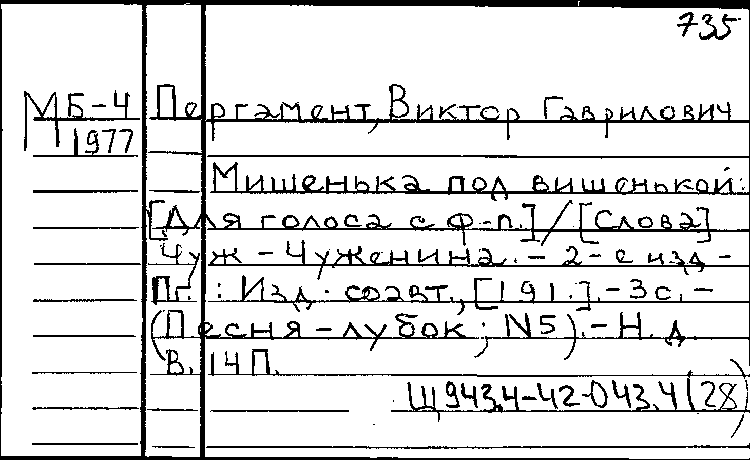 735
МБ-4 Пергамент, Виктор Гаврилович
1977
Мишенька под вишенькой:
[Для голоса с ф-п.] / [Слова]
Чуж-Чуженина. - 2-е изд -
Пг. : Изд. соавт., [191.]. - 3с. -
(Песня-лубок; N5). - Н. д.
В. 14 П.
Щ943.4-42-043.4(28)